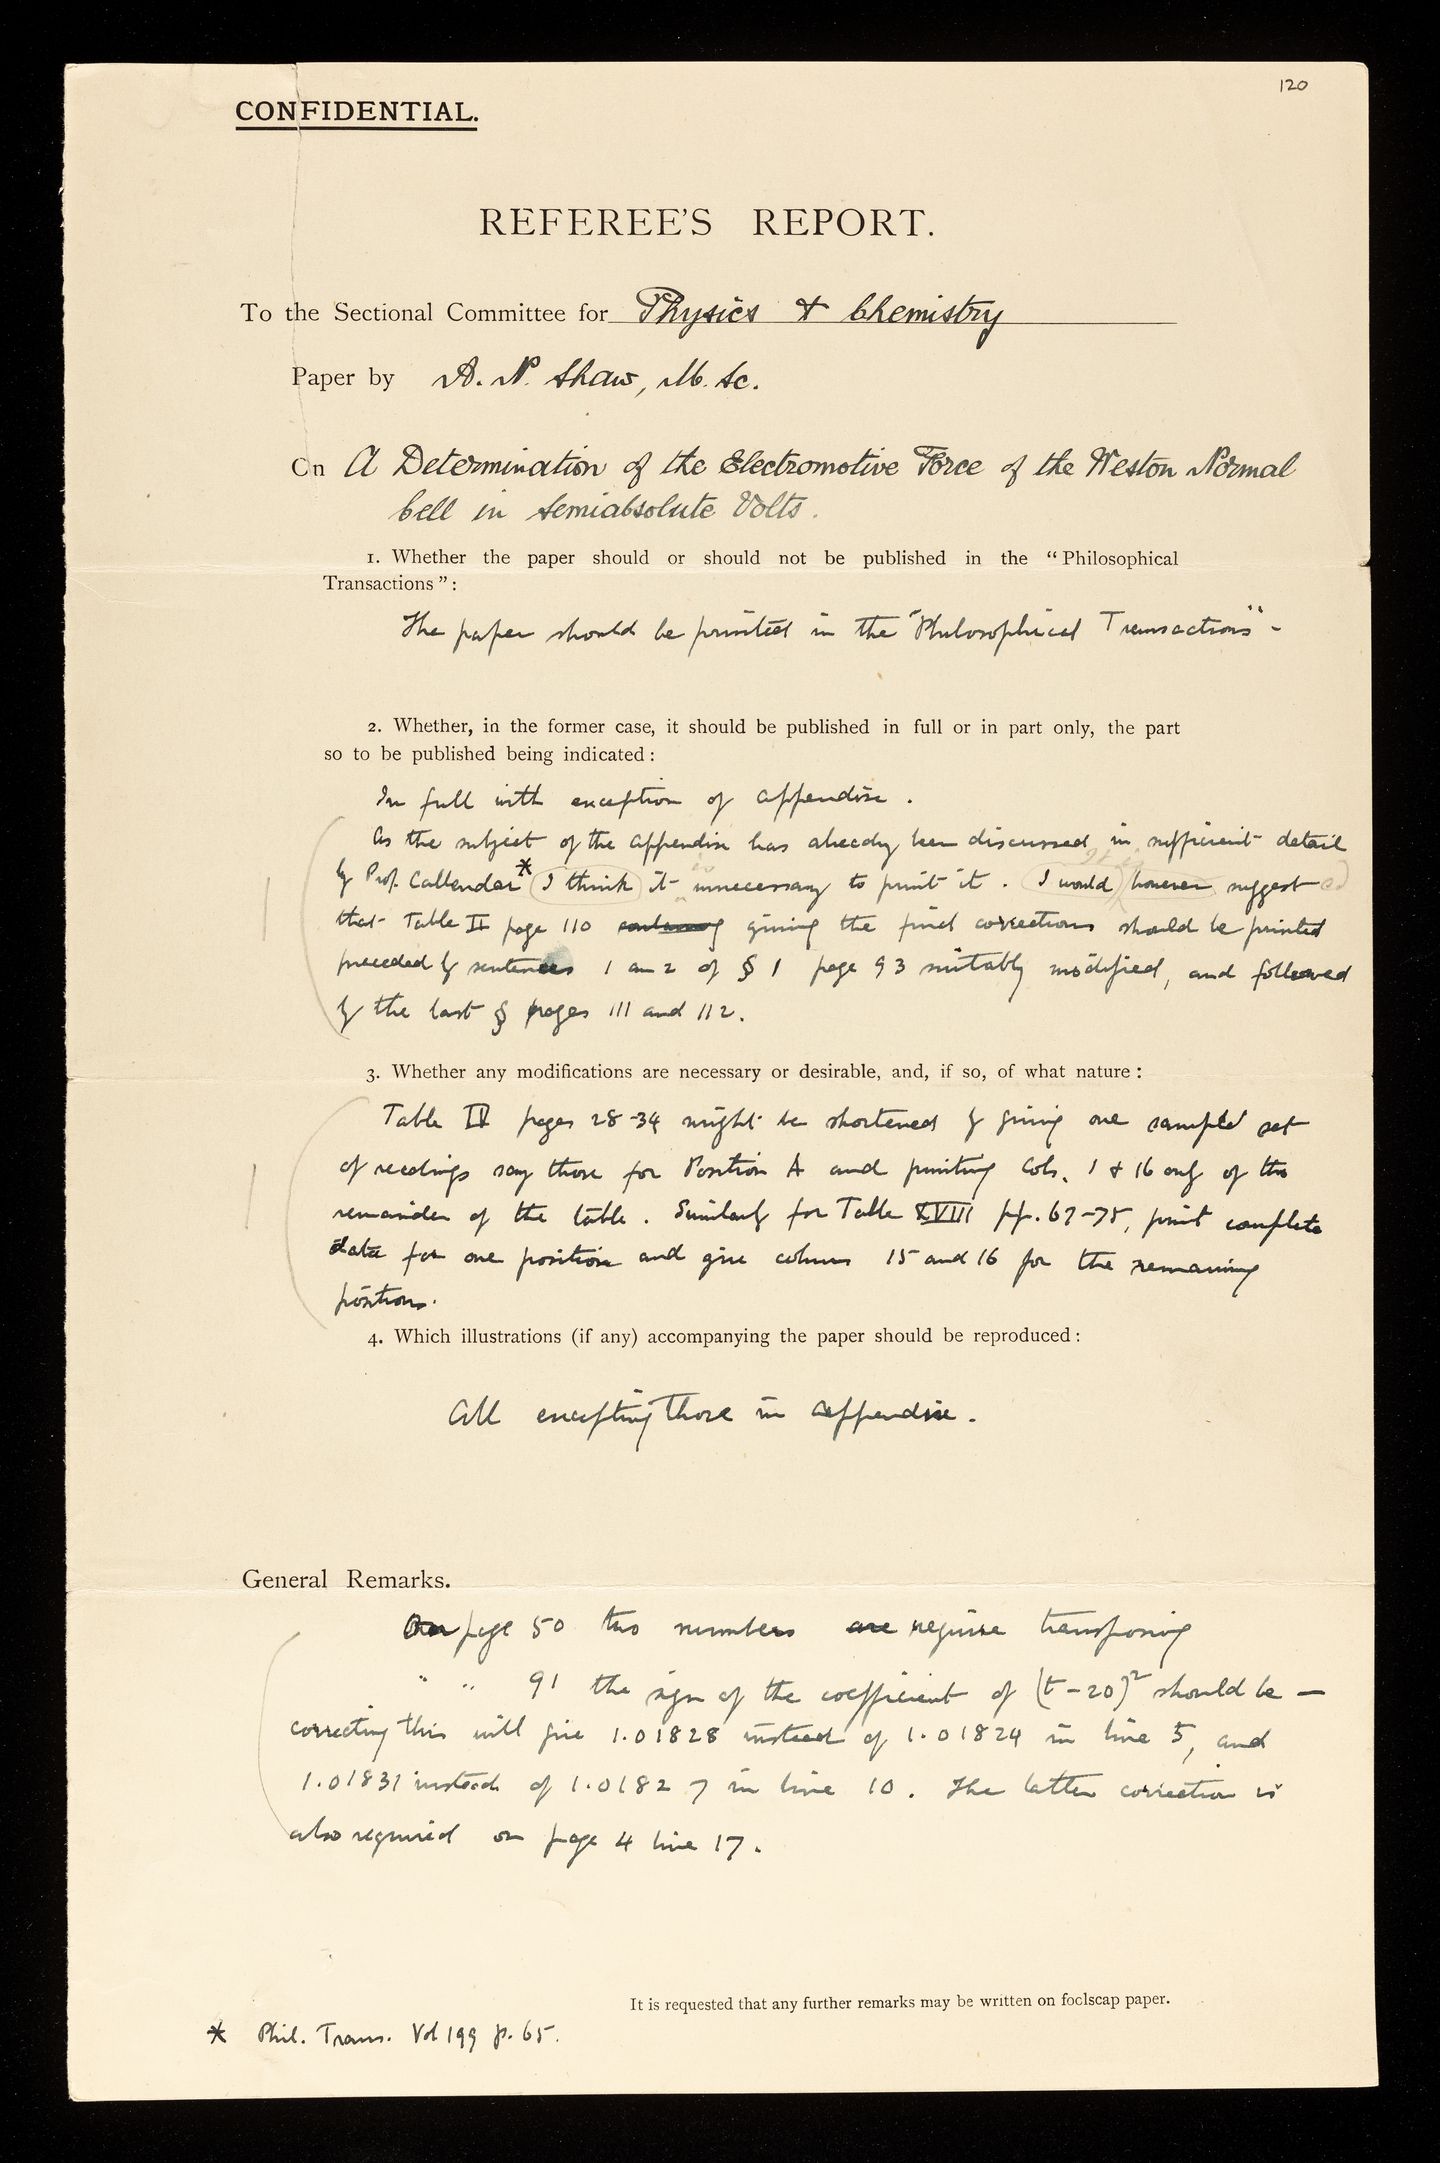 120
CONFIDENTIAL.
REFEREE'S REPORT.
To the Sectional Committee for Physics & Chemistry
Paper by A. N. Shaw, M. Sc.
On A Determination of the Electromotive Force of the Weston Normal
Cell in Semiabsolute Volts.
1. Whether the paper should or should not be published in the "Philosophical
Transactions":
The paper should be printed in the "Philosophical Transactions" -
2. Whether, in the former case, it should be published in full or in part only, the part
so to be published being indicated:
In full with exception of appendix.
As the subject of the appendix has already been discussed in sufficient detail
by Prof. Callendar* I think it unnecessary to print it. I would however suggest
that Table II page 110 giving the final corrections should be printed
preceded by sentences 1 an 2 of § 1 page 93 suitably modified, and followed
by the last § pages 111 and 112.
3. Whether any modifications are necessary or desirable, and, if so, of what nature:
Table IV pages 28-34 might be shortened by giving one sample set
of readings say those for Position A and printing Cols. 1 & 16 only of the
remainder of the table. Similarly for Table XVIII pp. 67-75, print complete
data for one position and give colums 15 and 16 for the remaining
positions.
4. Which illustrations (if any) accompanying the paper should be reproduced:
All excepting those in appendix.
General Remarks.
On page 50 two numbers are require transposing
" " 91 the sign of the coefficient of (t-20)² should be —
correcting this will give 1.01828 instead of 1.01824 in line 5, and
1.01831 instead of 1.01827 in line 10. The latter correction is
also required on page 4 line 17.
It is requested that any further remarks may be written on foolscap paper.
* Phil. Trans. Vol 199 p. 65.